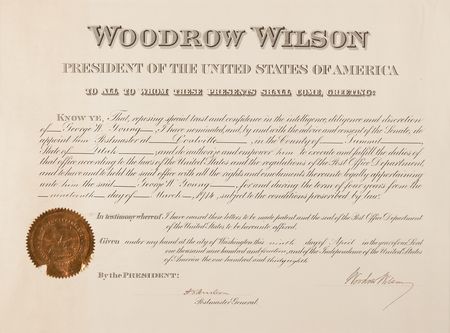 WOODROW WILSON
PRESIDENT OF THE UNITED STATES OF AMERICA
TO ALL TO WHOM THESE PRESENTS SHALL COME, GREETING:
KNOW YE, That, reposing special trust and confidence in the intelligence, diligence and discretion
of George W. Young, I have nominated, and, by and with the advice and consent of the Senate, do
appoint him Postmaster at Coalville, in the County of Summit
State of Utah, and do authorize and empower him to execute and fulfill the duties of
that office according to the laws of the United States and the regulations of the Post Office Department,
and to have and to hold the said office with all the rights and emoluments thereunto legally appertaining
unto him the said George W. Young, for and during the term of four years from the
nineteenth day of March, 1914, subject to the conditions prescribed by law.
In testimony whereof I have caused these letters to be made patent and the seal of the Post Office Department
of the United States to be hereunto affixed.
Given under my hand at the city of Washington this ninth day of April in the year of our Lord
one thousand nine hundred and fourteen, and of the Independence of the United States
of America the one hundred and thirty eighth.
By the PRESIDENT:
Woodrow Wilson
A S Burleson
Postmaster General.